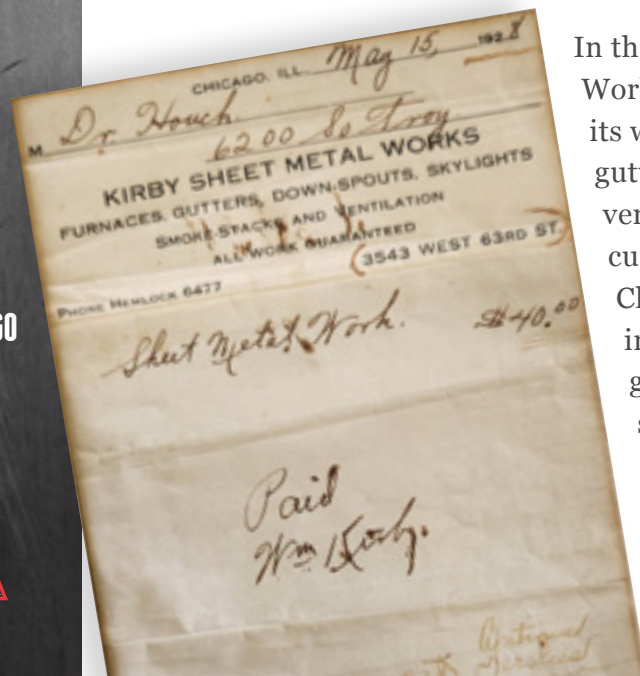 CHICAGO, ILL. May 15, 1928
M Dr. Houck.
6200 So Troy
KIRBY SHEET METAL WORKS
FURNACES, GUTTERS, DOWN-SPOUTS, SKYLIGHTS
SMOKE-STACKS AND VENTILATION
ALL WORK GUARANTEED
PHONE HEMLOCK 6477
(3543 WEST 63RD ST.)
Sheet Metal Work. $40.00
Paid
Wm Kirby.
In th
Wor
its w
gut
ver
cu
Cl
in
g
s
GO